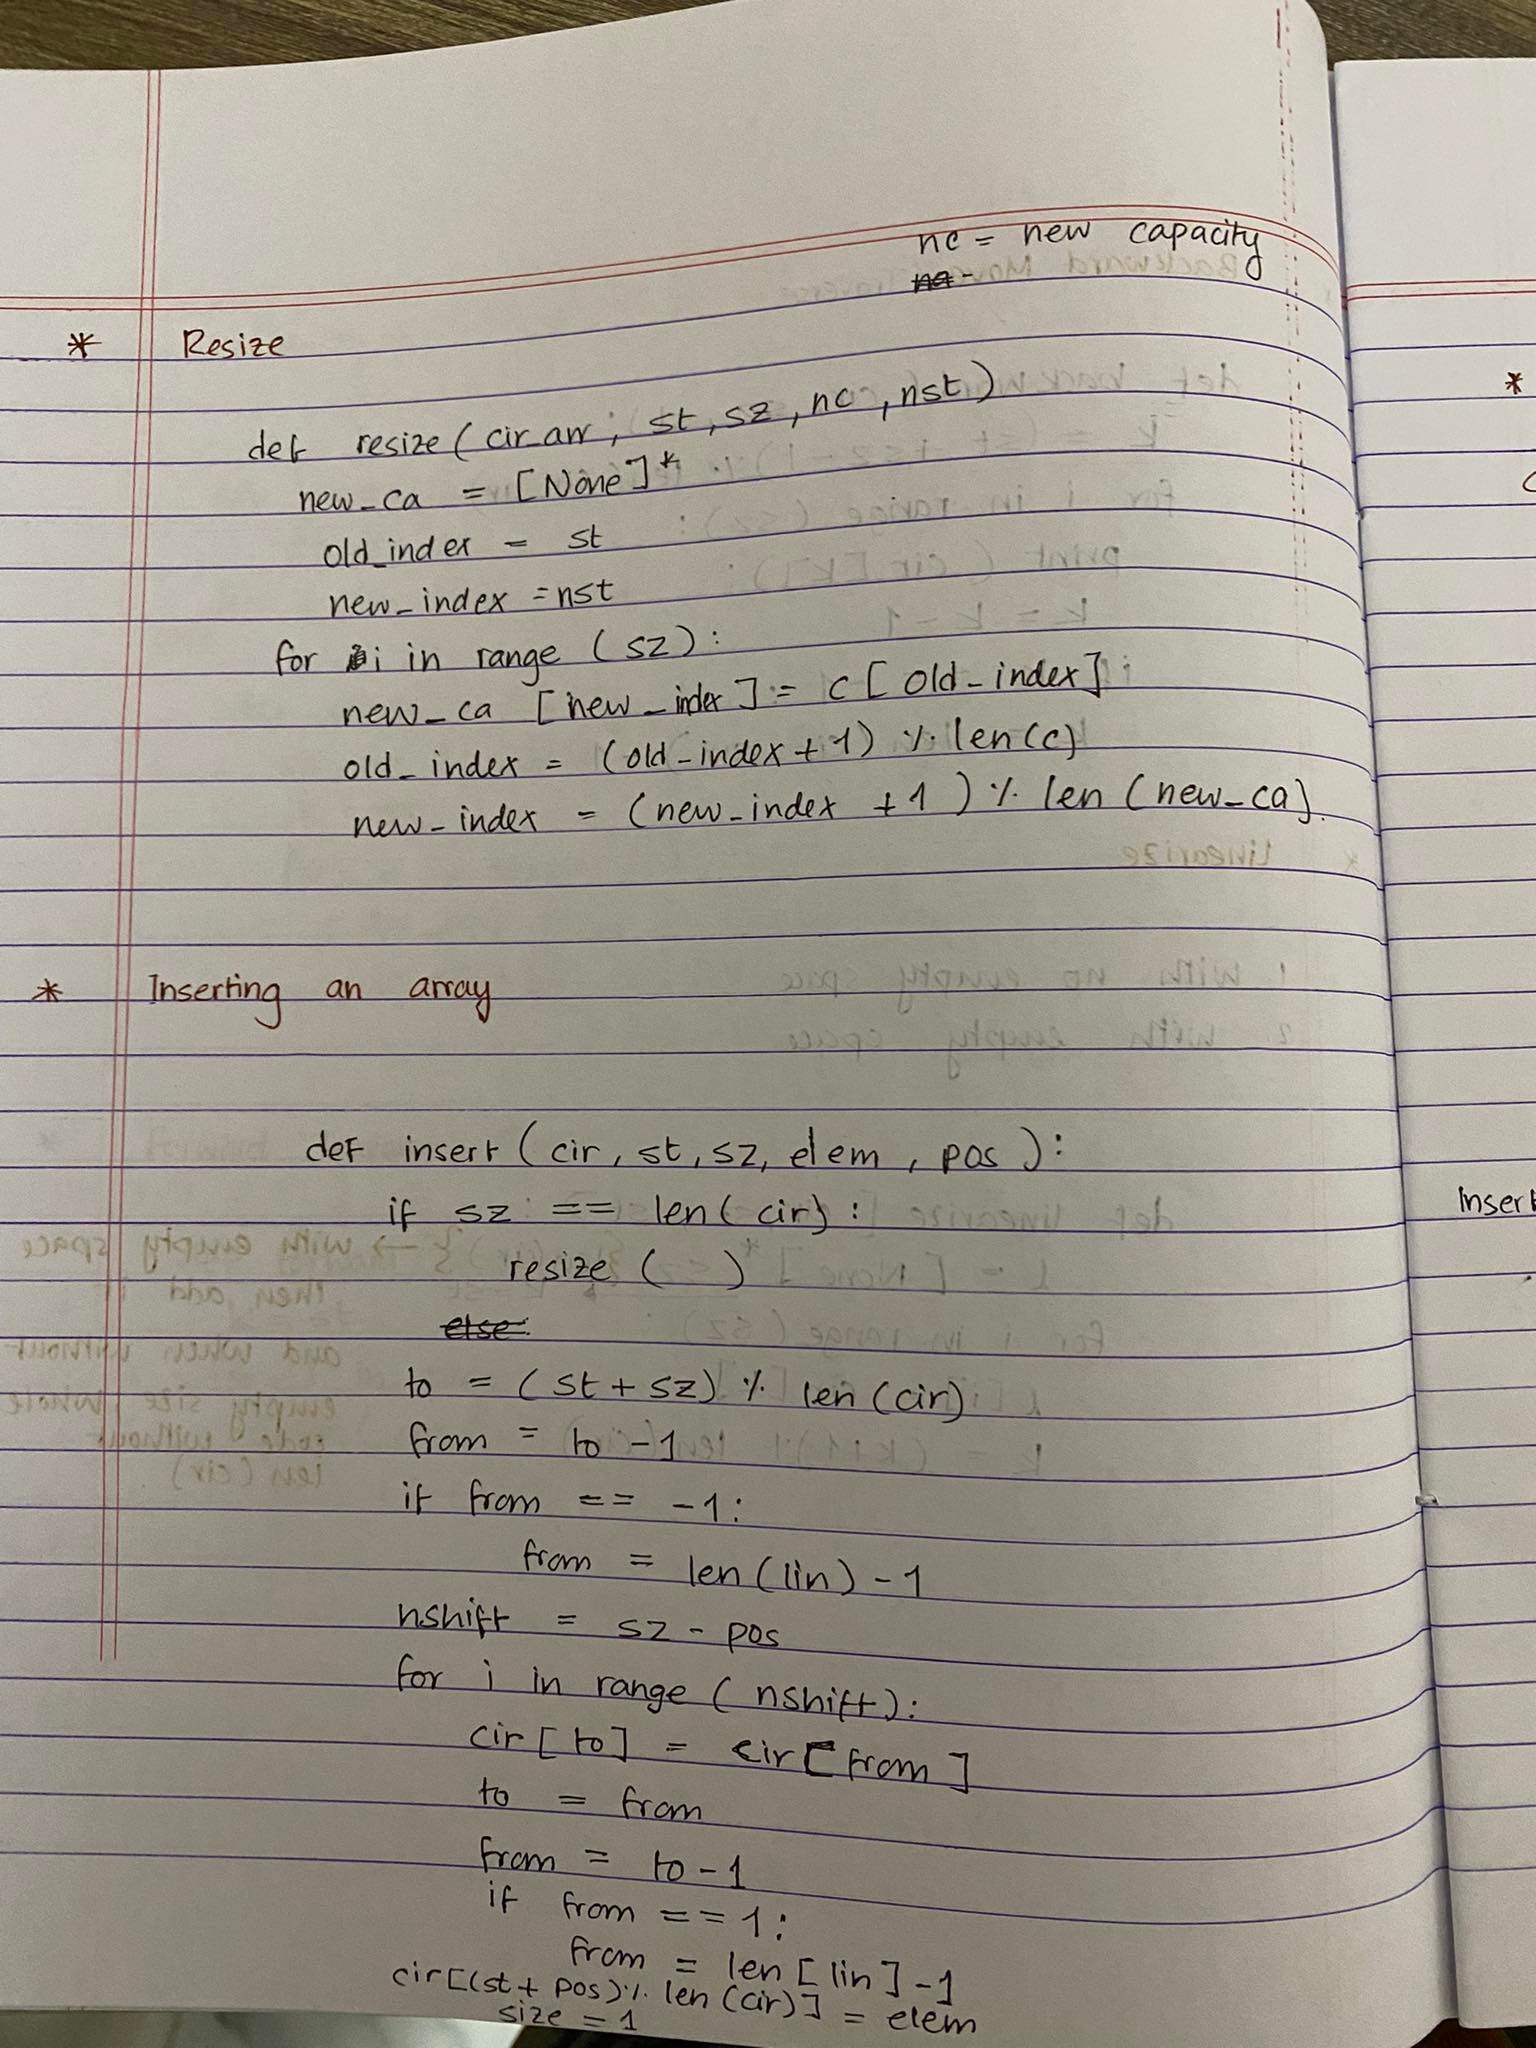 nc = new capacity
na -
* Resize
def resize ( cir_arr, st, sz, nc, nst)
new_ca = [None]*
old_index = st
new_index = nst
for i in range (sz):
new_ca [new_index] = c [old_index]
old_index = (old_index + 1) % len(c)
new_index = (new_index + 1) % len (new_ca).
* Inserting an array
def insert (cir, st, sz, elem, pos):
if sz == len(cir):
resize ( )
else:
to = (st + sz) % len (cir)
from = to - 1
if from == -1:
from = len (lin) - 1
nshift = sz - pos
for i in range (nshift):
cir [to] = cir [from]
to = from
from = to - 1
if from == 1:
from = len [lin] - 1
cir[(st + pos) % len (cir)] = elem
size = 1
*
Insert